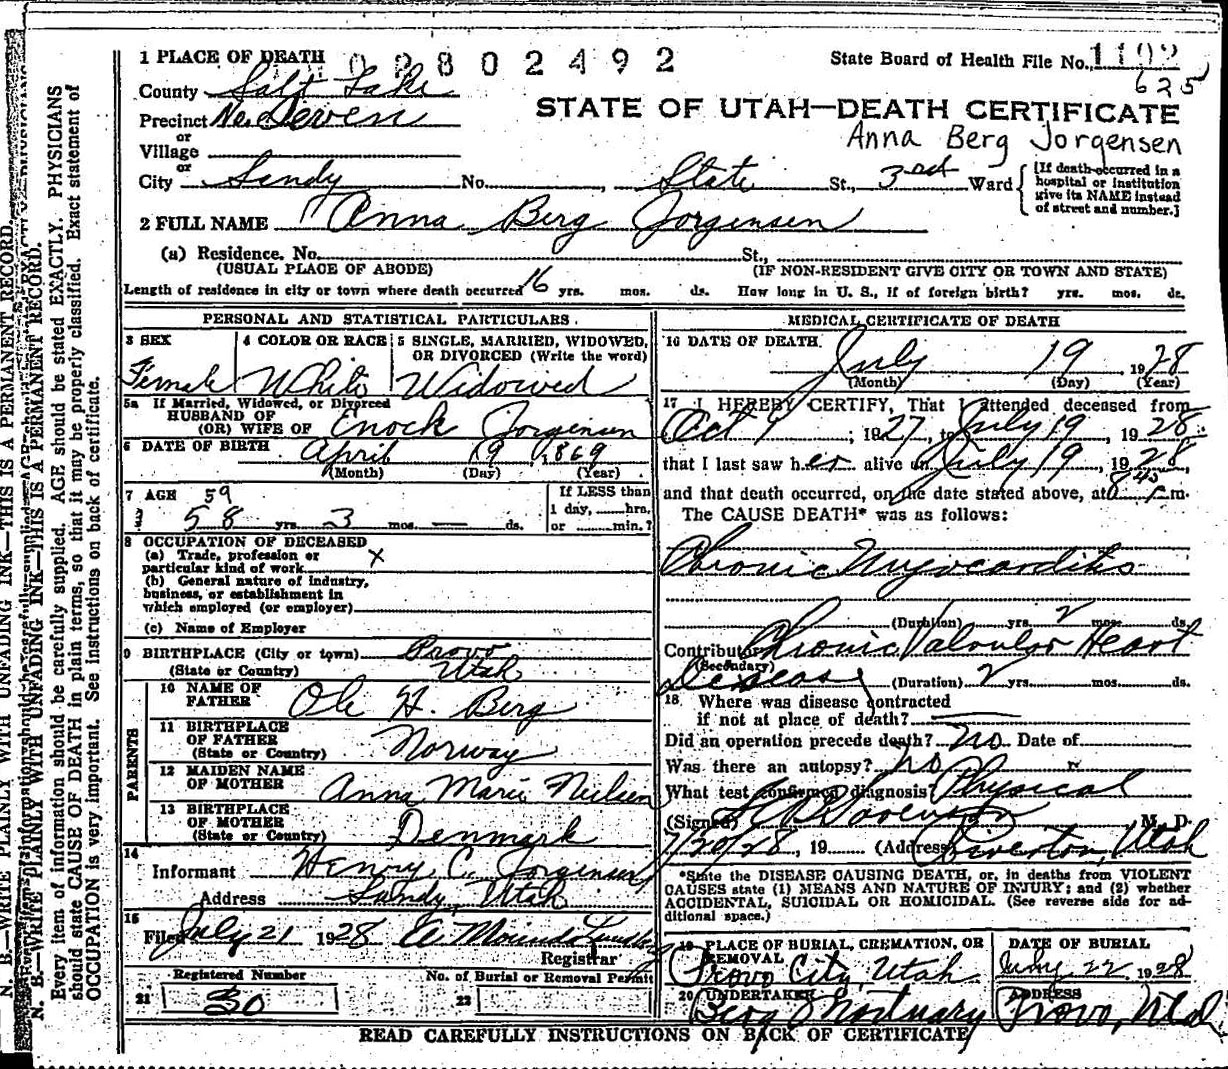 N. B.—WRITE PLAINLY WITH UNFADING INK—THIS IS A PERMANENT RECORD.
N. B.—WRITE PLAINLY WITH UNFADING INK—THIS IS A PERMANENT RECORD.
Every item of information should be carefully supplied. AGE should be stated EXACTLY. PHYSICIANS
should state CAUSE OF DEATH in plain terms, so that it may be properly classified. Exact statement of
OCCUPATION is very important. See instructions on back of certificate.
1 PLACE OF DEATH 02802492 State Board of Health File No. 1102
625
County Salt Lake
STATE OF UTAH—DEATH CERTIFICATE
Precinct No. Seven
or
Anna Berg Jorgensen
Village
or
City Sandy No. , State St., 3rd Ward
[If death occurred in a
hospital or institution
give its NAME instead
of street and number.]
2 FULL NAME Anna Berg Jorgensen
(a) Residence. No. St.,
(USUAL PLACE OF ABODE) (IF NON-RESIDENT GIVE CITY OR TOWN AND STATE)
Length of residence in city or town where death occurred 16 yrs. mos. ds. How long in U. S., if of foreign birth? yrs. mos. ds.
PERSONAL AND STATISTICAL PARTICULARS.
3 SEX 4 COLOR OR RACE 5 SINGLE, MARRIED, WIDOWED,
OR DIVORCED (Write the word)
Female White Widowed
5a If Married, Widowed, or Divorced
HUSBAND OF
(OR) WIFE OF Enock Jorgensen
6 DATE OF BIRTH April 19 1869
(Month) (Day) (Year)
7 AGE 59
58 yrs. 3 mos. — ds.
If LESS than
1 day, hrs.
or min.?
8 OCCUPATION OF DECEASED
(a) Trade, profession or
particular kind of work X
(b) General nature of industry,
business, or establishment in
which employed (or employer)
(c) Name of Employer
9 BIRTHPLACE (City or town) Provo
(State or Country) Utah
PARENTS
10 NAME OF
FATHER Ole H. Berg
11 BIRTHPLACE
OF FATHER Norway
(State or Country)
12 MAIDEN NAME
OF MOTHER Anna Marie Nielsen
13 BIRTHPLACE
OF MOTHER
(State or Country) Denmark
14
Informant Henry C. Jorgensen
Address Sandy, Utah
15
Filed July 21 1928
Registrar
Registered Number No. of Burial or Removal Permit
21 30 22
MEDICAL CERTIFICATE OF DEATH
16 DATE OF DEATH July 19, 1928
(Month) (Day) (Year)
17 I HEREBY CERTIFY, That I attended deceased from
Oct 1; 1927, to July 19, 1928
that I last saw her alive on July 19, 1928
and that death occurred, on the date stated above, at 8 45 P.m.
The CAUSE DEATH* was as follows:
Chronic Myocarditis
(Duration) yrs. 2 mos. ds.
Contributory Chronic Valvular Heart
(Secondary)
Disease (Duration) 2 yrs. mos. ds.
18 Where was disease contracted
if not at place of death?
Did an operation precede death? no Date of
Was there an autopsy? no
What test confirmed diagnosis? Physical
(Signed) M. D.
7/20/28, 19 (Address) Riverton, Utah
*State the DISEASE CAUSING DEATH, or, in deaths from VIOLENT
CAUSES state (1) MEANS AND NATURE OF INJURY; and (2) whether
ACCIDENTAL, SUICIDAL OR HOMICIDAL. (See reverse side for ad-
ditional space.)
19 PLACE OF BURIAL, CREMATION, OR
REMOVAL
Provo City, Utah
DATE OF BURIAL
July 22 1928
20 UNDERTAKER
Berg Mortuary
ADDRESS
Provo, Utah
READ CAREFULLY INSTRUCTIONS ON BACK OF CERTIFICATE